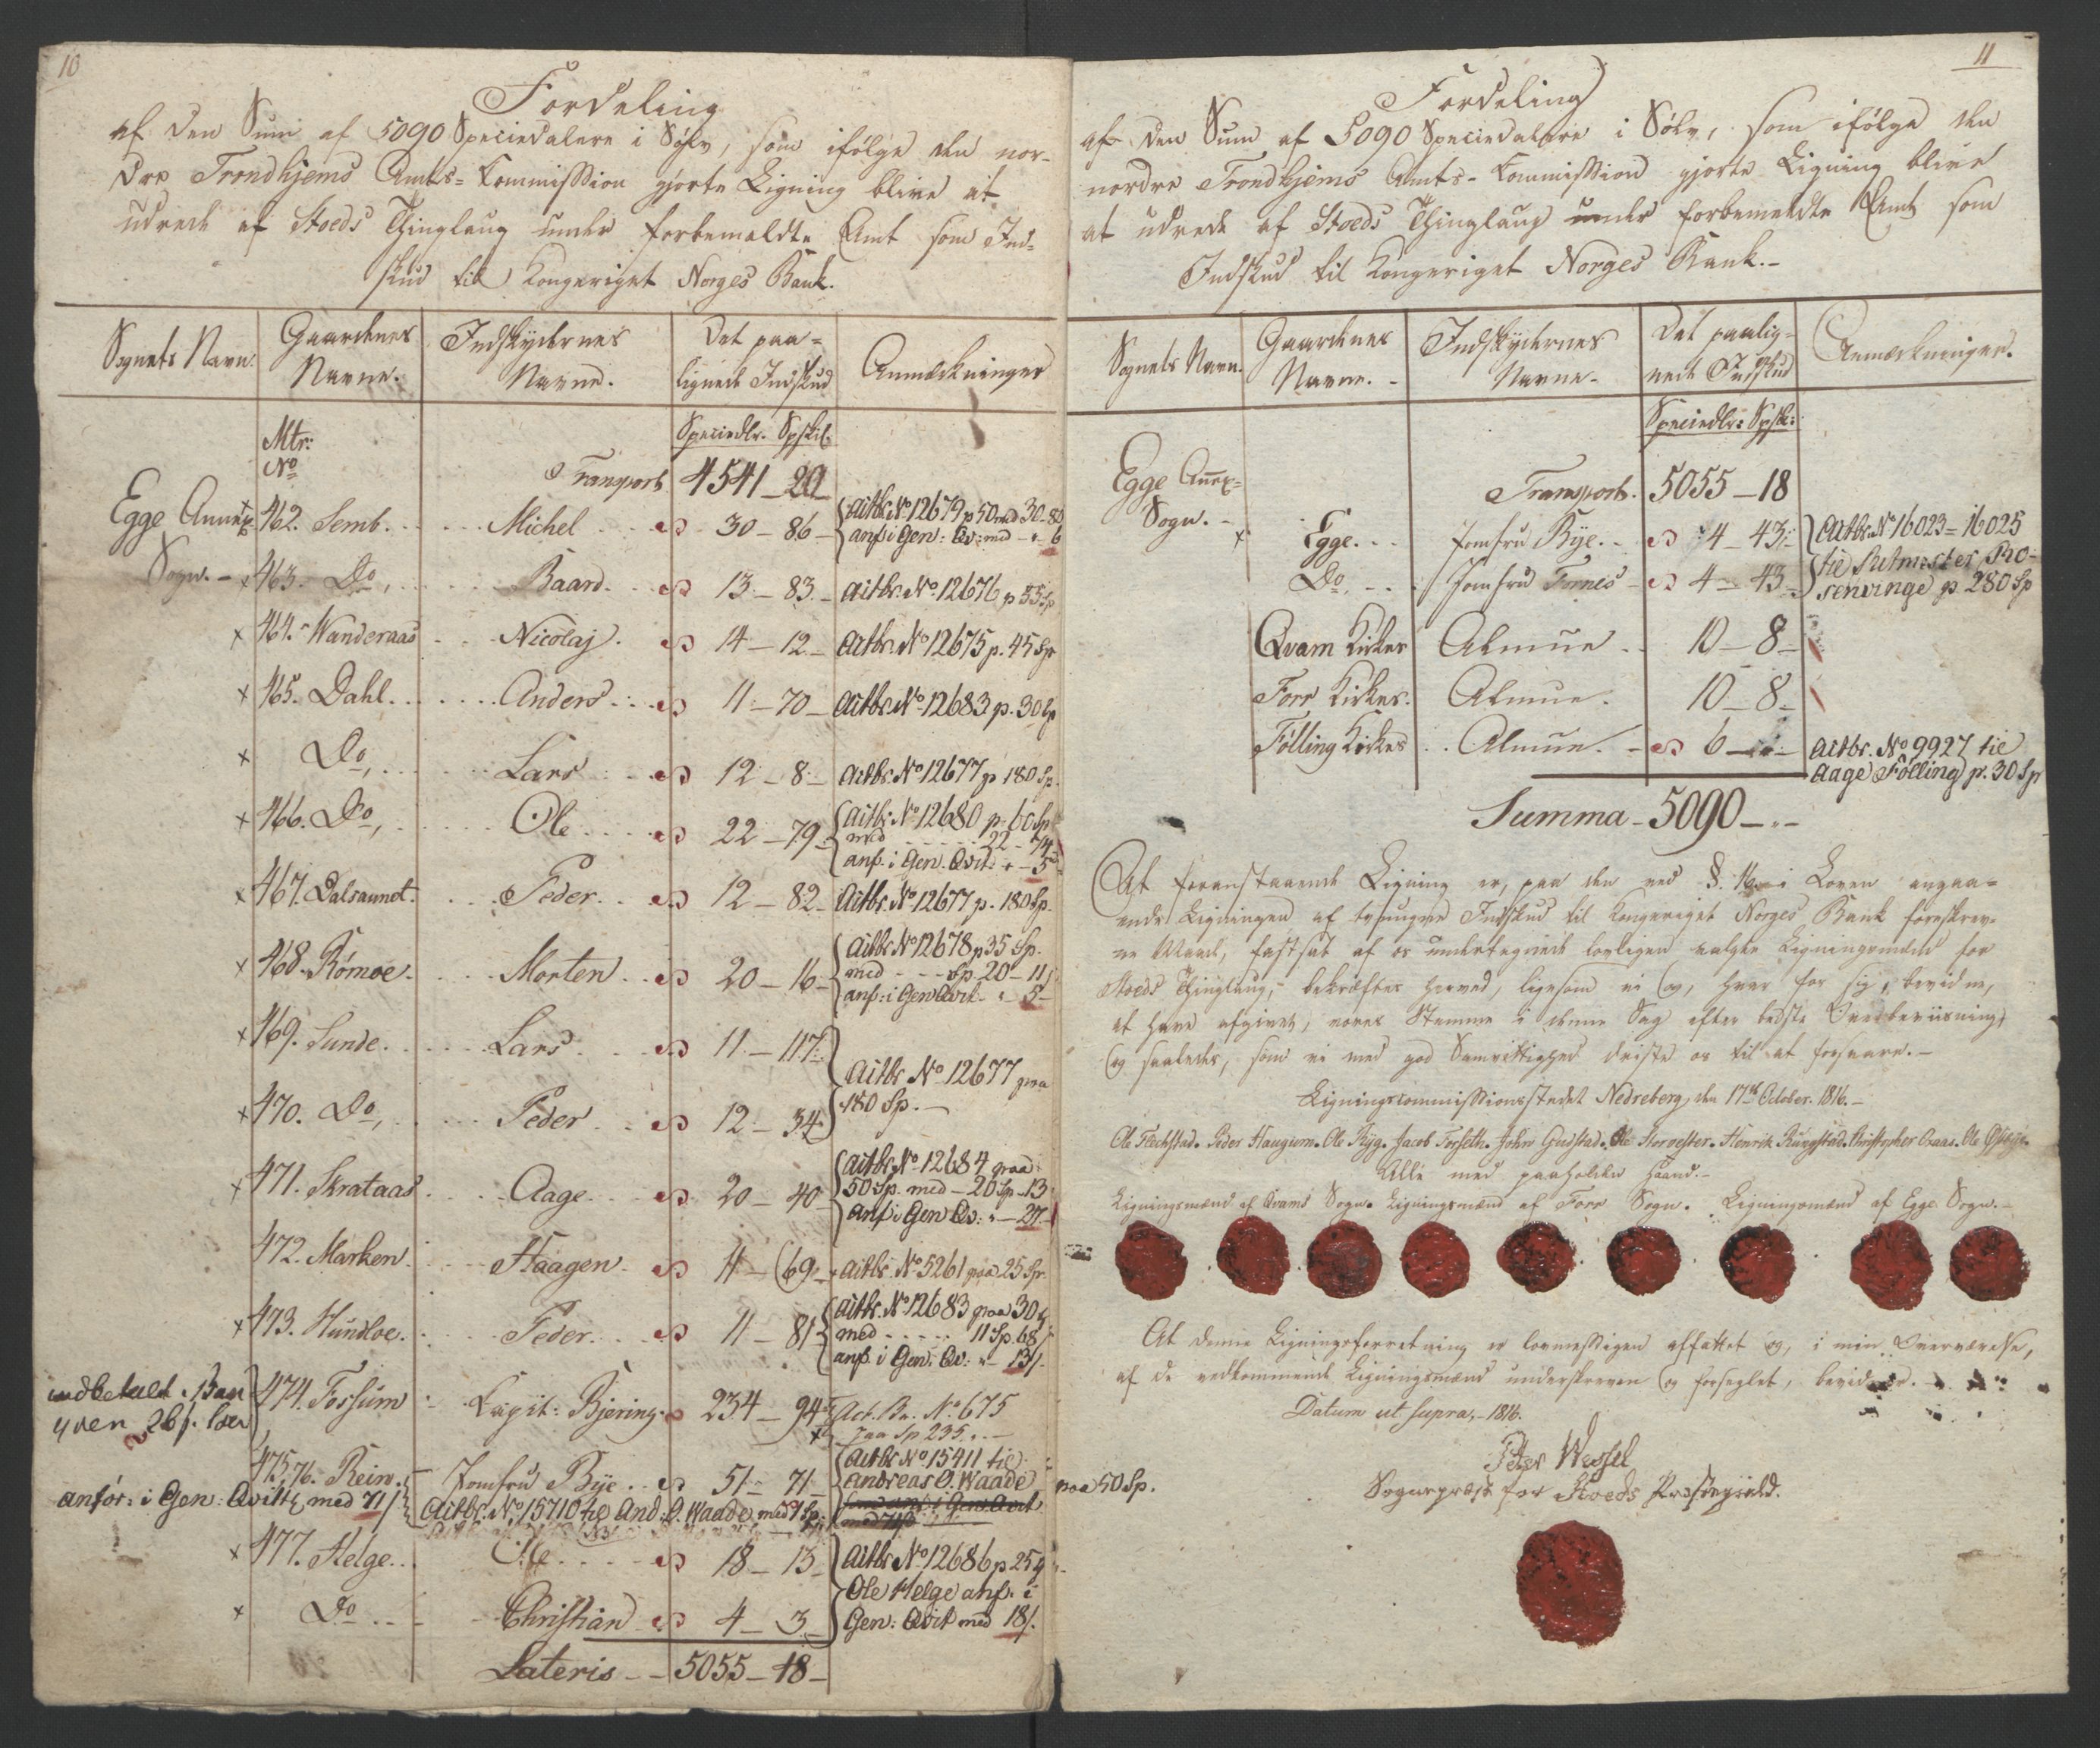 10
Fordeling
af den Sum af 5090 Speciedalere i Sølv, som ifølge den nor-
dre Trondhjems Amts-Kommission gjorte Ligning blive at
udrede af Stoeds Thinglaug under forbemeldte Amt som Ind-
skud til Kongeriget Norges Bank.
Sognets Navn. Gaardenes Navne. Indskydernes Navne. Det paa-lignede Indskud Anmærkninger
Mtr: No Speciedlr. Spskil.
Transport 4541 - 20
Egge Annex Sogn. - x 462. Semb. Michel 30 - 86 - Actbr. No 12679 p 50 med 30 - 80
anf. i Gen: Qv: med - " - 6
x 463. Do, Baard. 13 - 83 - Actbr. No 12676 p 55 Sp
x 464. Wanderaas Nicolaj. 14 - 12 - Actbr. No 12675 p. 45 Sp
x 465. Dahl. Anders 11 - 70 - Actbr. No 12683 p. 30 Sp
x Do, Lars 12 - 8 - Actbr. No 12677 p 180 Sp.
x 466. Do, Ole 22 - 79 - Actbr. No 12680 p. 60 Sp
med 22 - 74
anf. i Gen. Qvit: " - 5
x 467. Dalsaunet. Peder. 12 - 82 - Actbr. No 12677 p. 180 Sp.
x 468. Rømoe. Morten 20 - 16 - Actbr No 12678 p 35 Sp.
med - Sp. 20 - 11
anf: i Gen Qvit - " - 5 -
x 469. Sunde. Lars 11 - 117.
Actbr No 12677 paa
x 470. Do, Peder 12 - 34 180 Sp. -
x 471. Skrataas Aage 20 - 40 - Actbr. No 12684 paa
50 Sp. med - 20 Sp - 13
anf i Gen Qv: " - 27.
472. Marken Haagen 11 - 69 - Actbr. No 5261 paa 25 Sp.
x 473. Hundloe. Peder. 11 - 81 - Actbr. No 12683 paa 30 Sp
med 11 Sp. 68
anf. i Gen: Qv: " - 13/.
indbetalt i Ban
474. Fossum Capit: Bjering. 234 - 94 Act. Br. No 675
paa Sp 235. " -
475,76. Rein. Jomfru Bye 51 - 71 - Actbr No 15411 til
Andreas O. Waade paa 50 Sp.
anfør: i Gen: Qvittg med 71/ Actbr. No 15710 til And: O. Waade med 1 Sp:
x 477. Helge. Ole 18 - 13 - Actbr No 12686 p 25 Sp
Ole Helge anf. i
x Do Christian 4 - 3 - Gen: Qvit med 18/.
Lateris - - 5055 - 18 -
11
Fordeling
af den Sum af 5090 Speciedalere i Sølv, som ifølge den
nordre Trondhjems Amts-Kommission gjorte Ligning blive
at udrede af Stoeds Thinglaug under forbemeldte Amt som
Indskud til Kongeriget Norges Bank. -
Sognets Navn. Gaardenes Navne. - Indskydernes Navne. - Det paalig-nede Indskud Anmærkninger.
Speciedlr: Spsk:
Transport. 5055 - 18
Egge Annex-Sogn. - x Egge. Jomfru Bye. 4 - 43 Actbr. No 16023 = 16025
Do. Jomfru Finnes 4 - 43 til Ritmester Ro-
senvinge p. 280 Sp
Qvam Kirkes Almue 10 - 8 -
Forr Kirkes. Almue. 10 - 8 -
Følling Kirkes Almue. - 6 - " - Actbr. No 9927 til
Aage Følling p. 30 Sp
Summa - 5090 - " -
At foranstaaende Ligning er, paa den ved §. 16 i Loven angaa-
ende Ligningen af tvungne Indskud til Kongeriget Norges Bank foreskrev-
ne Maade, fastsat af os undertegnede lovligen valgte Ligningsmænd for
Stoeds Thinglaug, bekræftes herved, ligesom vi og, hver for sig, bevidne,
at have afgivet, vores Stemme i denne Sag efter bedste Overbeviisning,
og saaledes, som vi med god Samvittighed driste os til at forsvare. -
Ligningscommissionsstedet Nedreberg, den 17de October. 1816. -
Ole Fechstad. Peder Haugum. Ole Ryg. Jacob Forseth. John Gudstad. Ole Storvester. Henrik Rungstad. Christopher Oraas. Ole
Alle med paaholden Haand. -
Ligningsmænd af Qvams Sogn. Ligningsmænd af Forr Sogn. Ligningsmænd af Egge Sogn. -
At denne Ligningsforretning er lovmessigen affattet og, i min Overværelse,
af de vedkommende Ligningsmænd underskreven og forseglet, bevidner.
Datum ut supra, - 1816.
Peter Wessel
Sognepræst for Stoeds Præstegield.